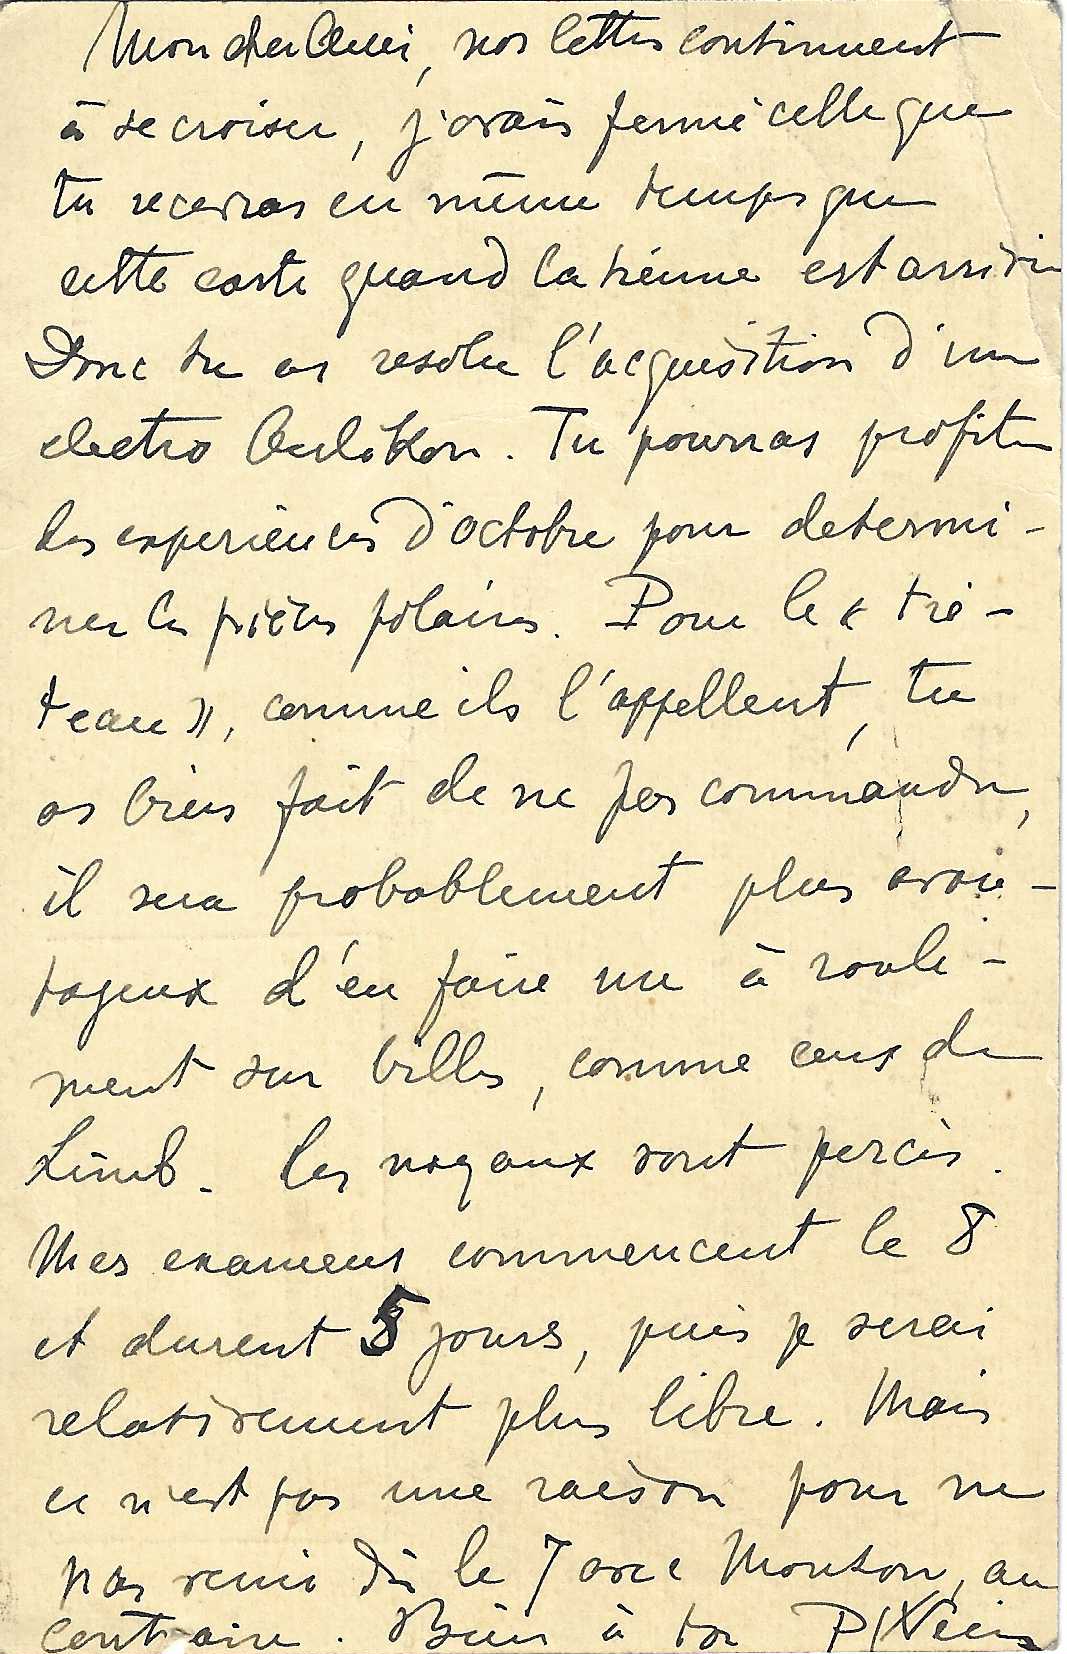 Mon cher Ami, nos lettres continuent
à se croiser, j'avais fermé celle que
tu recevras en même temps que
cette carte quand la tienne est arrivée
Donc tu as resolu l'acquisition d'un
electro Oerlikon. Tu pourras profiter
des experiences d'octobre pour determi-
ner les pièces polaires. Pour le « tré-
teau », comme ils l'appellent, tu
as bien fait de ne pas commander,
il sera probablement plus avan-
tageux d'en faire un à roule-
ment sur billes, comme ceux de
Limb. Les noyaux sont percés.
Mes examens commencent le 8
et durent 5 jours, puis je serai
relativement plus libre. Mais
ce n'est pas une raison pour ne
pas venir dès le 7 avec Mouton, au
contraire. Bien à toi P Weiss